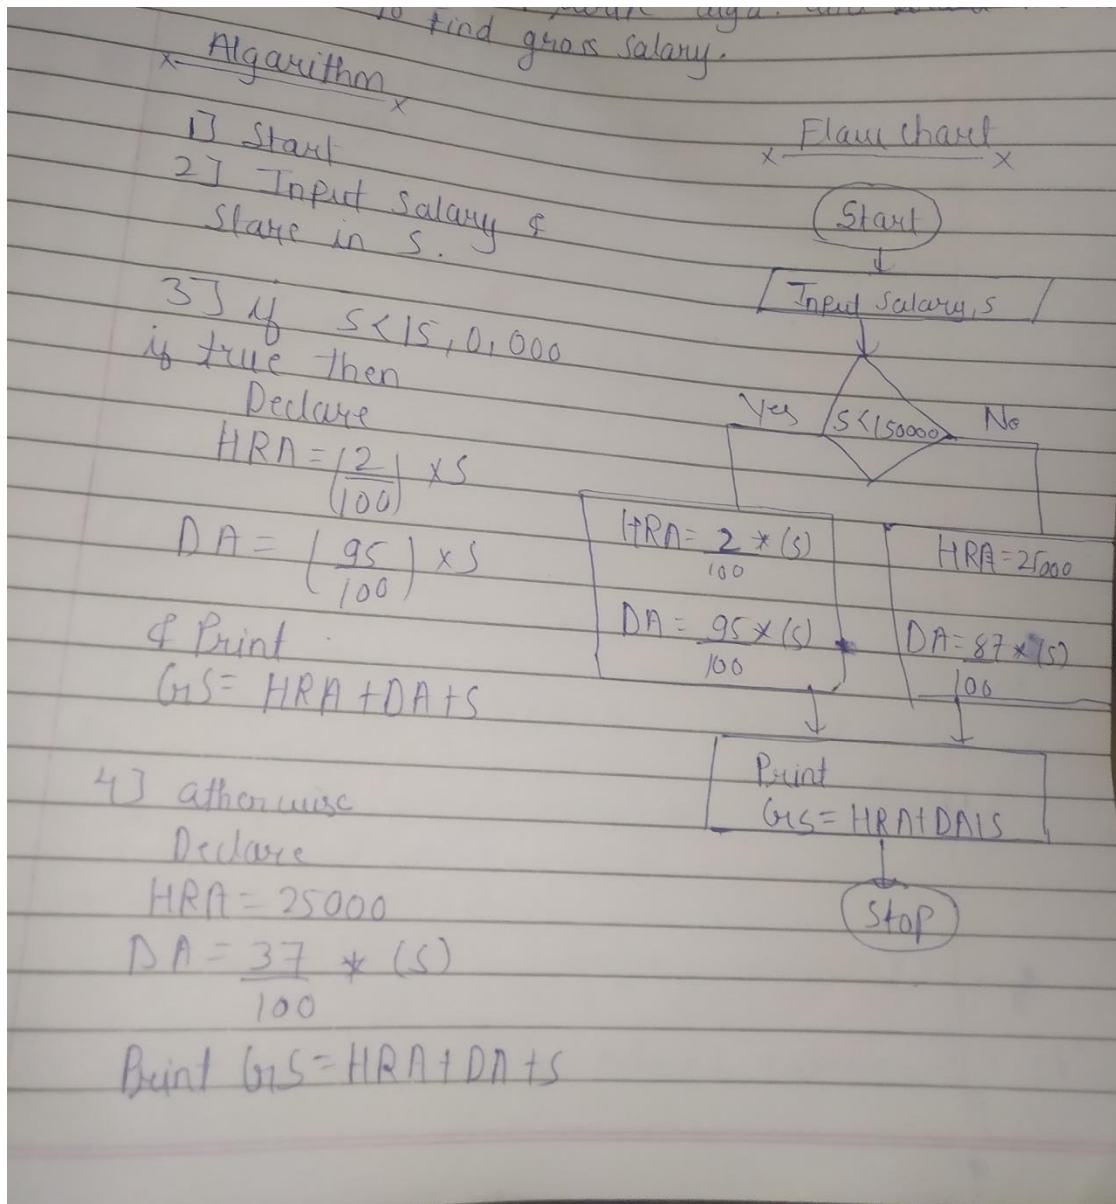 To find gross salary.
Algarithm
1] Start
2] Input Salary &
Stare in S.
3] if S<15,0,000
if true then
Declare
HRA = (2/100) × S
DA = (95/100) × S
& Print
GS = HRA + DA + S
4] atherwise
Declare
HRA = 25000
DA = 37/100 * (S)
Print GS = HRA + DA + S
Flaw chart
Start
Input Salary, S
Yes S<150000 No
HRA = 2/100 * (S)
DA = 95/100 * (S)
HRA = 25000
DA = 87/100 * (S)
Print
GS = HRA+DA+S
Stop